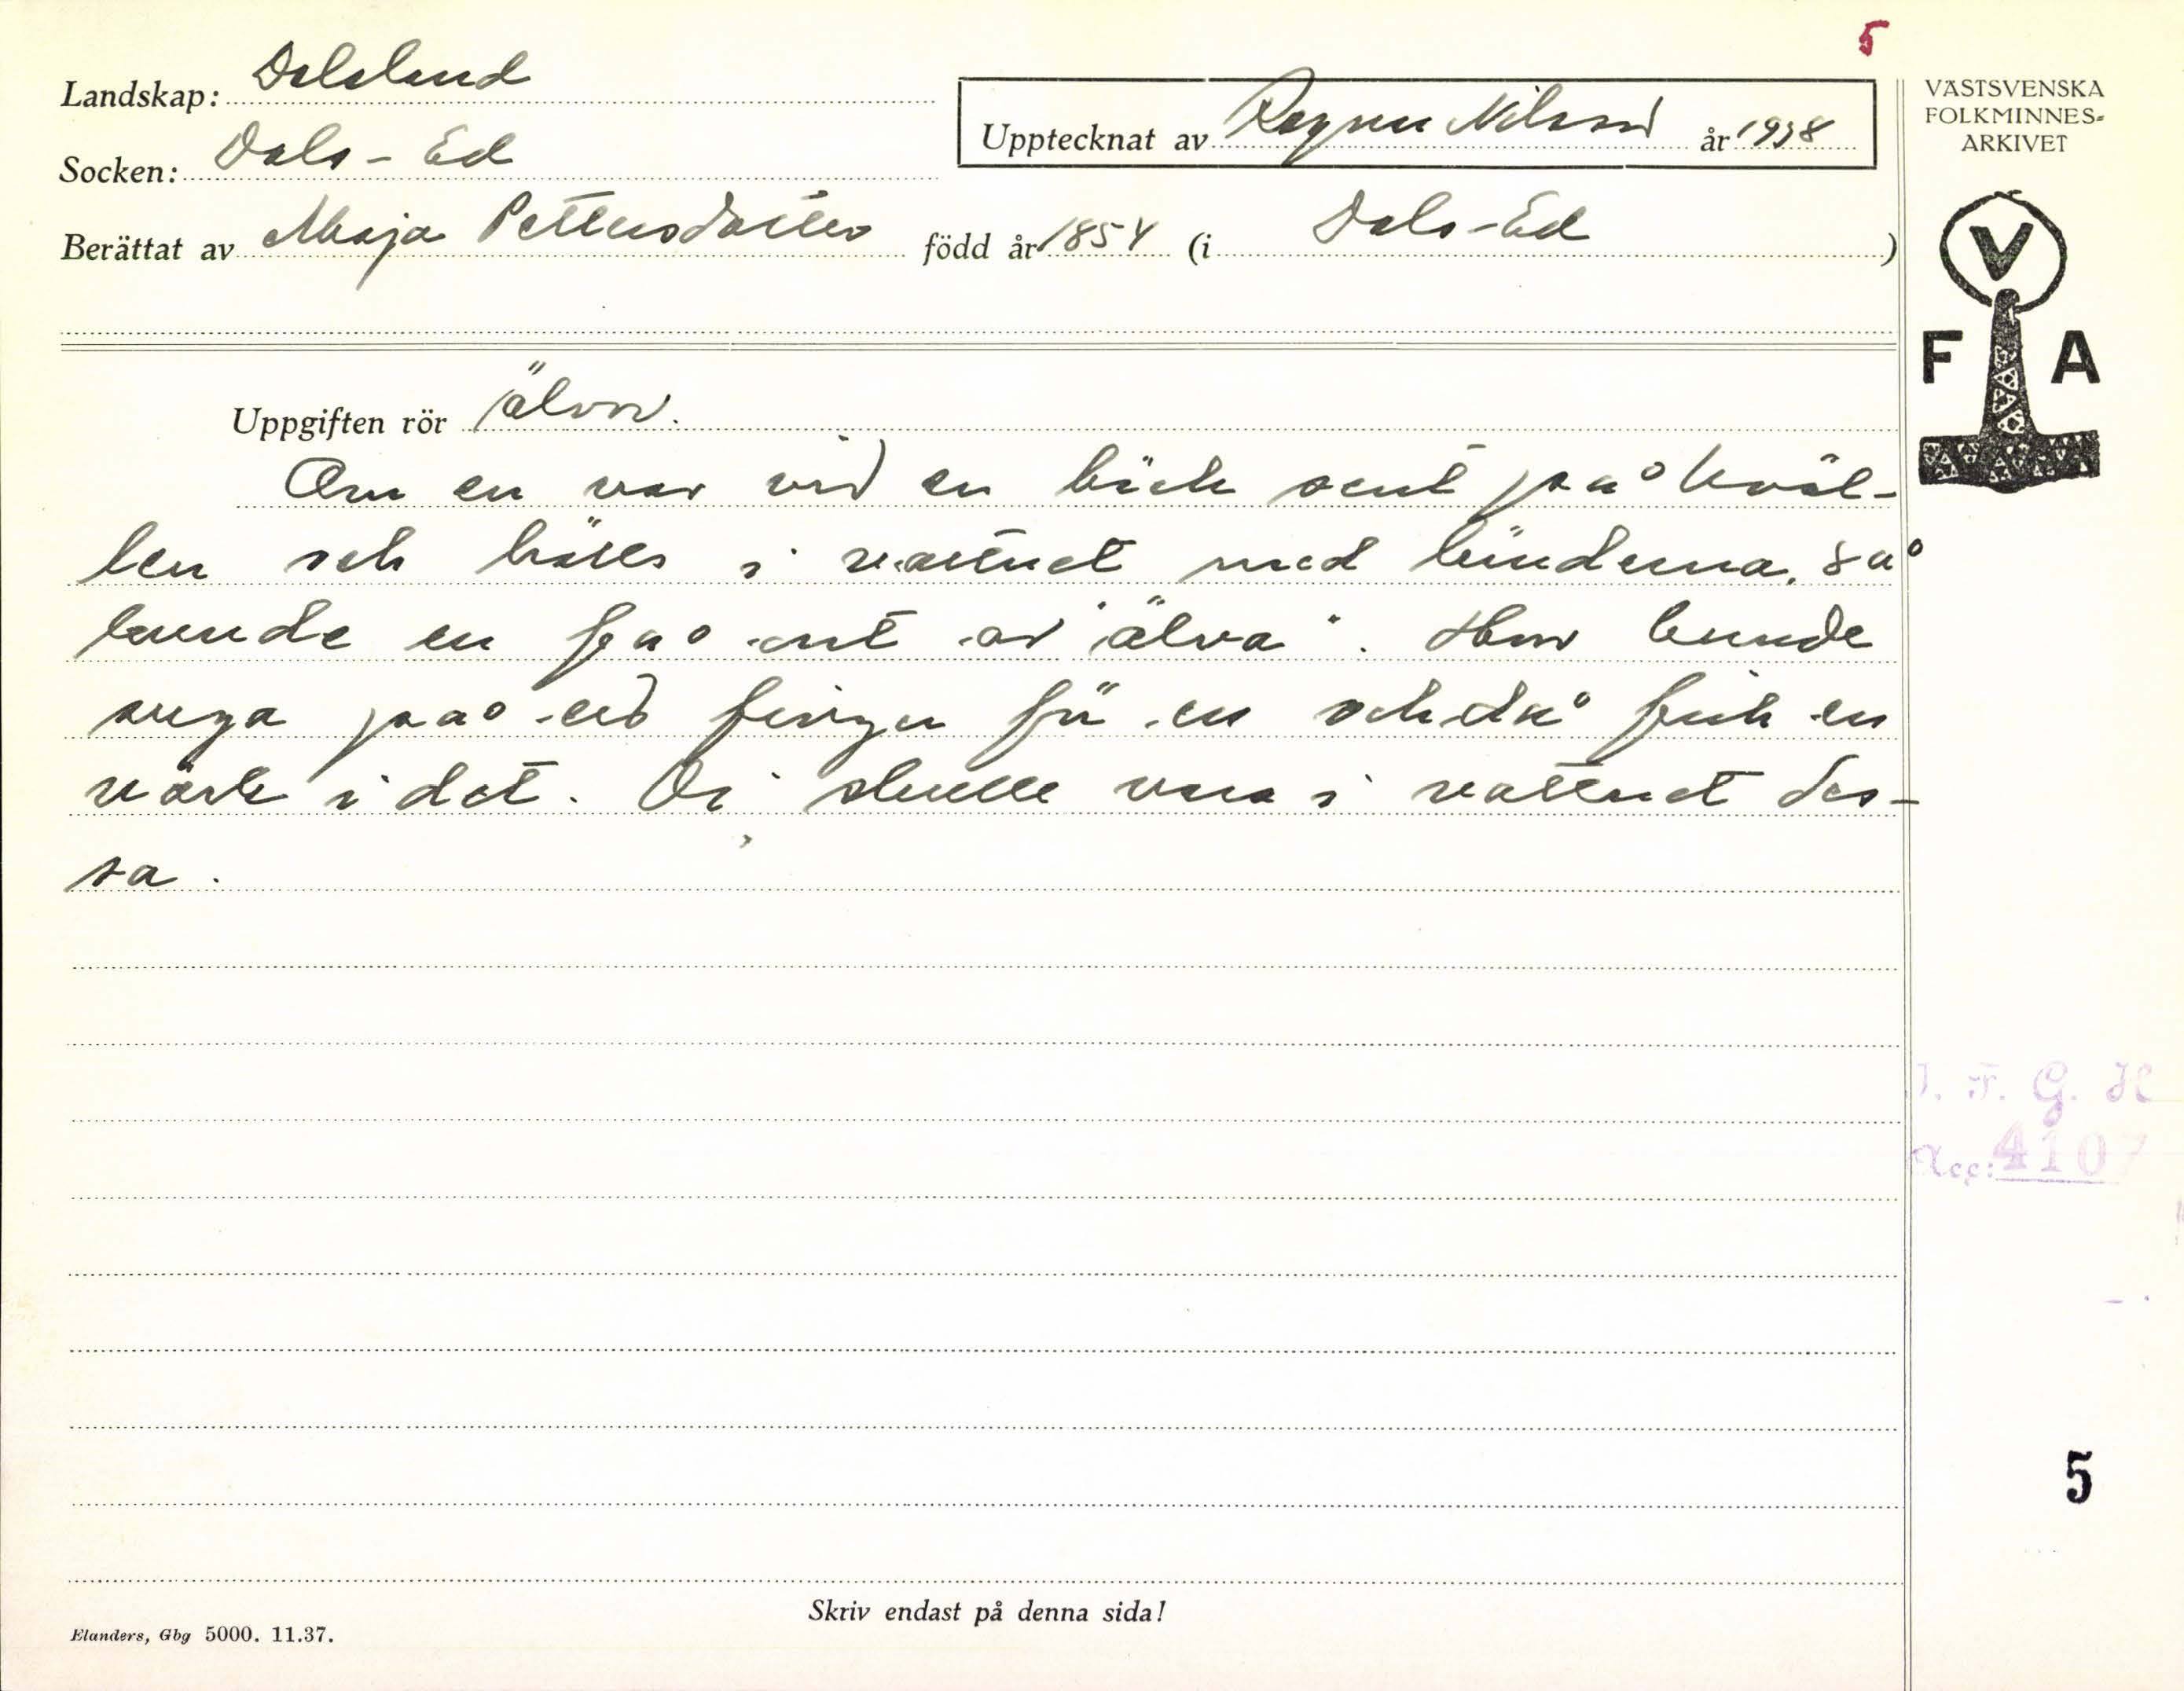 5
Landskap: Dalsland
Upptecknat av Ragnar Nilsson år 1938
VÄSTSVENSKA
FOLKMINNES-
ARKIVET
Socken: Dals-Ed
Berättat av Maja Pettersdotter född år 1854 (i Dals-Ed)
V
F A
Uppgiften rör älvor.
Om en var vid en bäck sent på kväl-
len och i vattnet med händerna, så
kunde en få ont av "älva". Hon kunde
suga på ett finger för en och då fick en
värk i det. Di skulle vara i vattnet des-
sa.
I. F. G. H
Acc: 4107
5
Skriv endast på denna sida!
Elanders, Gbg 5000. 11.37.